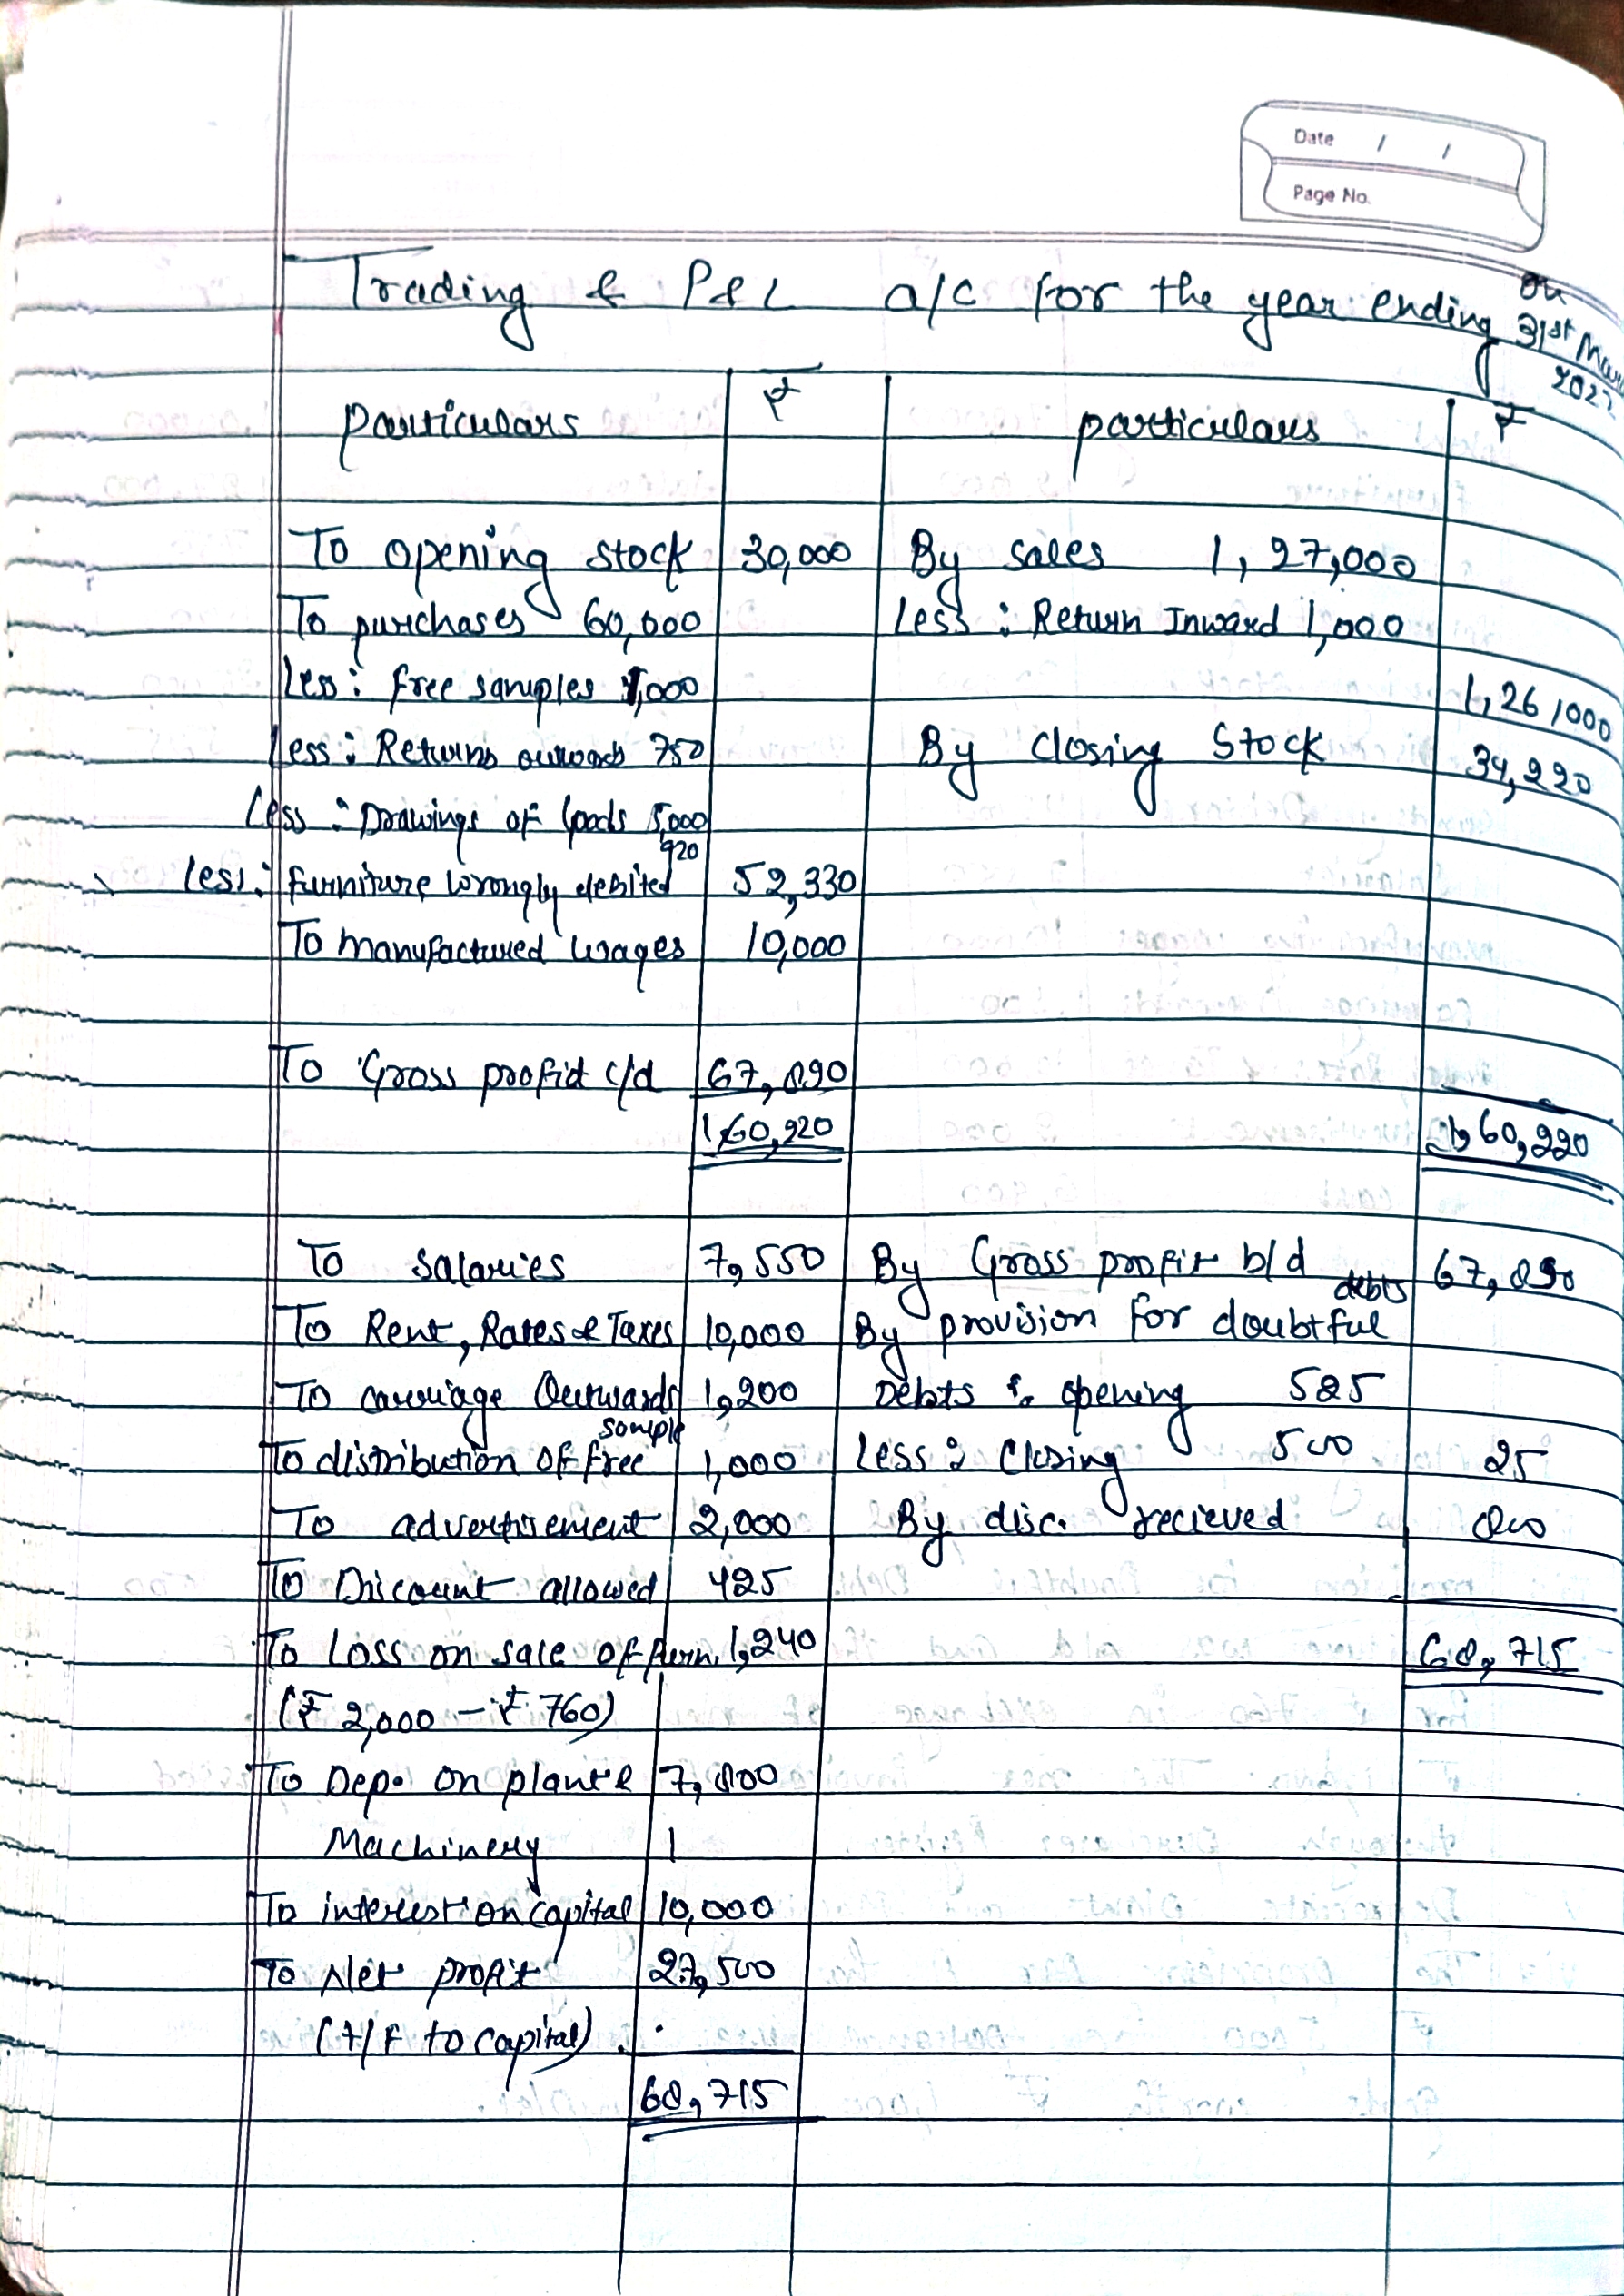 Date / /
Page No.
Trading & P&L a/c for the year ending on 31st March 2022
Particulars ₹ particulars ₹
To opening stock 30,000 By sales 1,27,000
To purchases 60,000 Less : Return Inward 1,000
Less : free samples 1,000 1,26,000
Less : Returns outwards 750 By Closing Stock 34,220
Less : Drawings of Goods 5,000
Less : furniture wrongly debited 920 52,330
To manufactured wages 10,000
To Gross profit c/d 67,890
1,60,220 1,60,220
To salaries 7,550 By Gross profit b/d 67,890
To Rent, Rates & Taxes 10,000 By provision for doubtful debts
To carriage Outwards 1,200 Debts : opening 525
To distribution of free sample 1,000 Less : Closing 500 25
To advertisement 2,000 By disc. recieved 800
To Discount allowed 425
To Loss on sale of furn. 1,240 68,715
(₹ 2,000 - ₹ 760)
To Dep. on plant & 7,800
Machinery
To interest on capital 10,000
To Net profit 27,500
(t/f to capital)
68,715